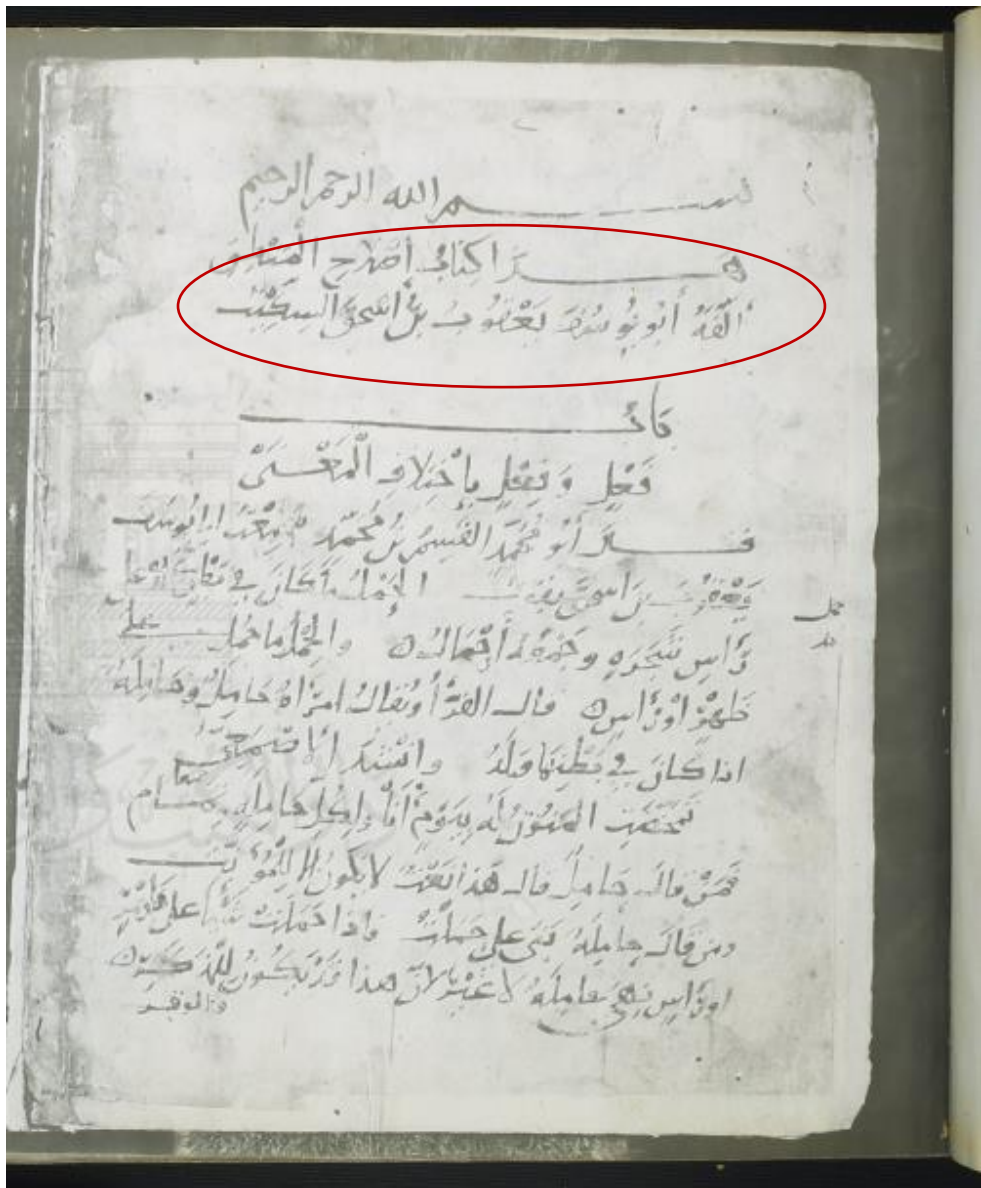 بسم الله الرحمن الرحيم
هذا كتاب إصلاح المنطق
ألّفه أبو يوسف يعقوب بن اسحق السكيت
باب
فَعْلٍ وَفِعْلٍ بِاخْتِلافِ الْمَعْنَى
قال أبو محمد القسم بن محمد أبا يوسف
يعقوب بن اسحق يقول الحَمْلُ ما كان في بطن او على
رأس شجره وجمعه أحمال والحِمل ما حمل على
ظهر او رأس قال الفرّا ويقال امرأة حامل وحامله
اذا كان في بطنها ولد وانشد الأصمعي
تمخضت المنون له بيوم أنَى ولكل حاملة تمام
فمن قال حامل قال هذا نعت لا يكون الا للمؤنث
ومن قال حامله بنى على حملت فاذا حملت شيا على
او رأس فهى حامله لا غير لان هذا قد يكون للذكر
حمل